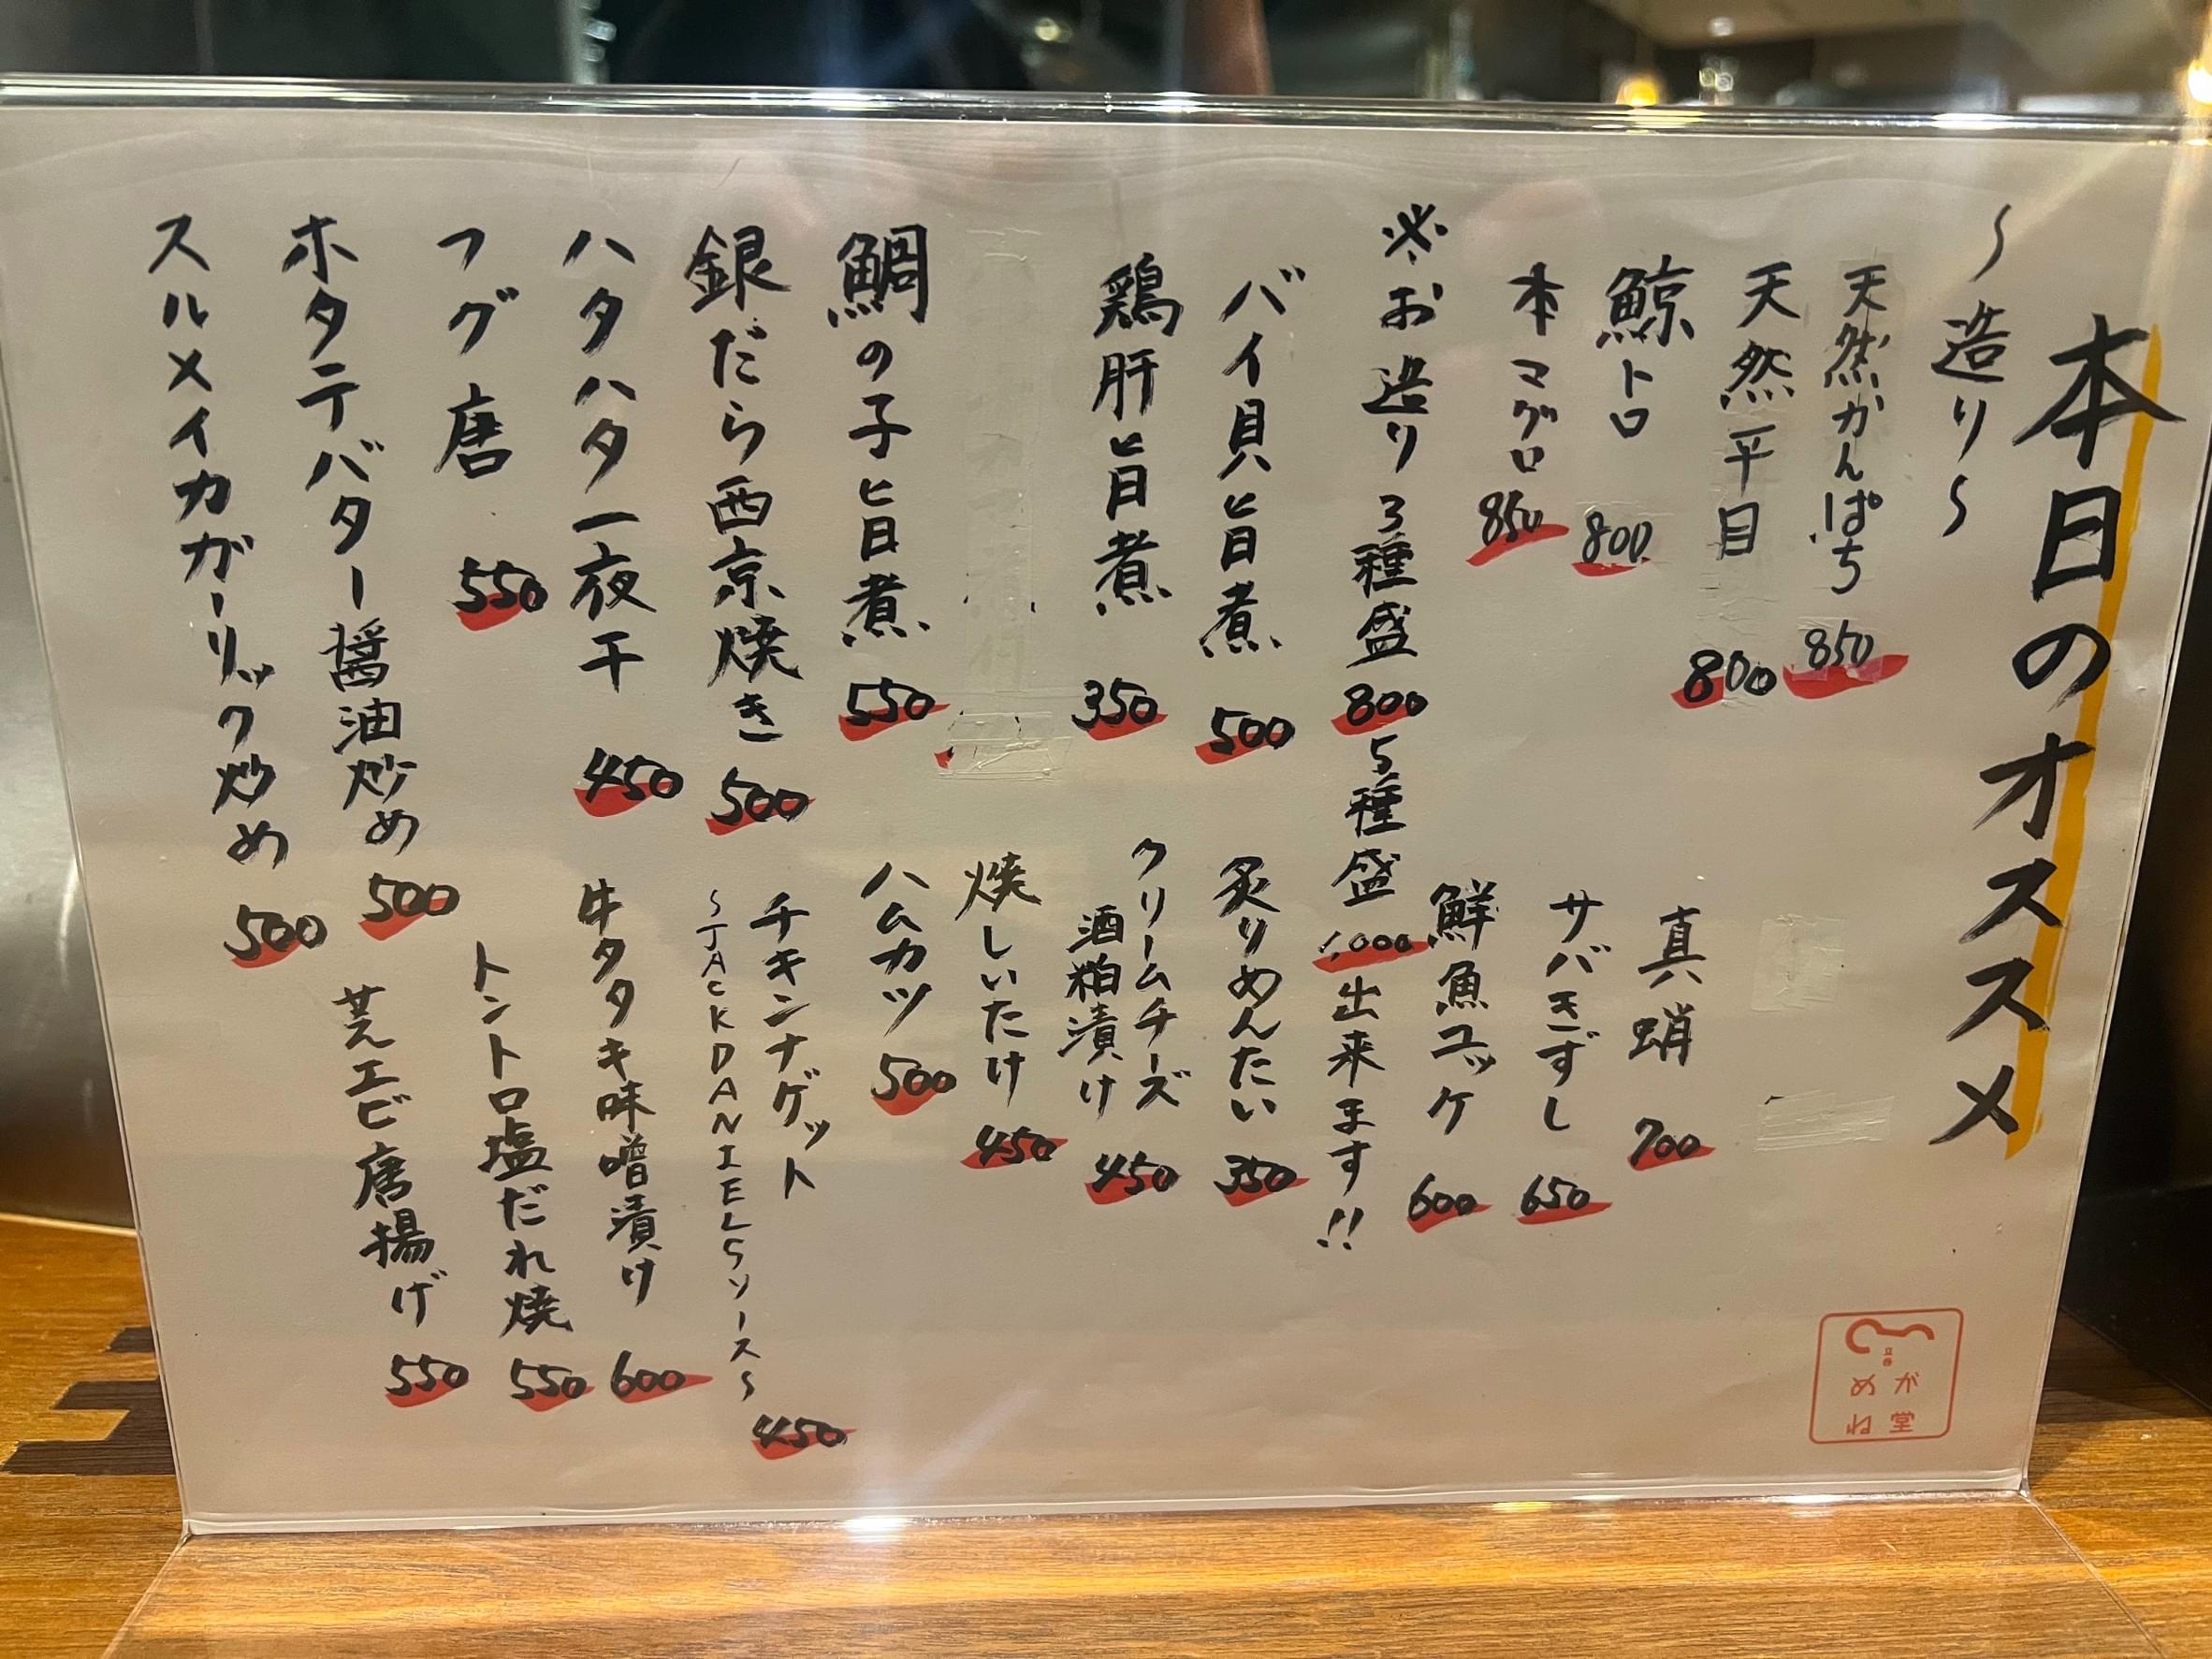 本日のオススメ
～造り～
天然かんぱち 850
天然平目 800
鯨トロ 800
本マグロ 850
真蛸 700
サバきずし 650
鮮魚ユッケ 600
※お造り3種盛800 5種盛1,000出来ます!!
バイ貝旨煮 500
鶏肝旨煮 350
炙りめんたい 350
クリームチーズ
酒粕漬け 450
焼しいたけ 450
鯛の子旨煮 550
ハムカツ 500
銀だら西京焼き 500
チキンナゲット
～JACK DANIELSソース～ 450
ハタハタ一夜干 450
牛タタキ味噌漬け 600
フグ唐 550
トントロ塩だれ焼 550
ホタテバター醤油炒め 500
芝エビ唐揚げ 550
スルメイカガーリック炒め 500
めがね堂